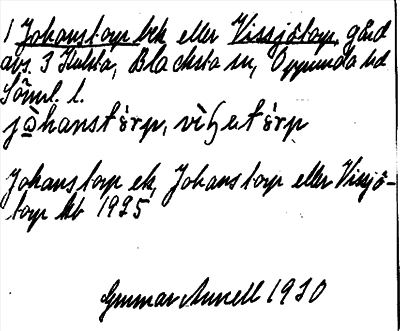 1 Johanstorp bek eller Vissjötorp, gård
avs. 3 Hukta, Blacksta sn, Oppunda hd
Söml. l.
jòhanstǒrp, vìʃɵtǒrp
Johanstorp ek, Johanstorp eller Vissjö-
torp kb 1925
Gunnar Anell 1930